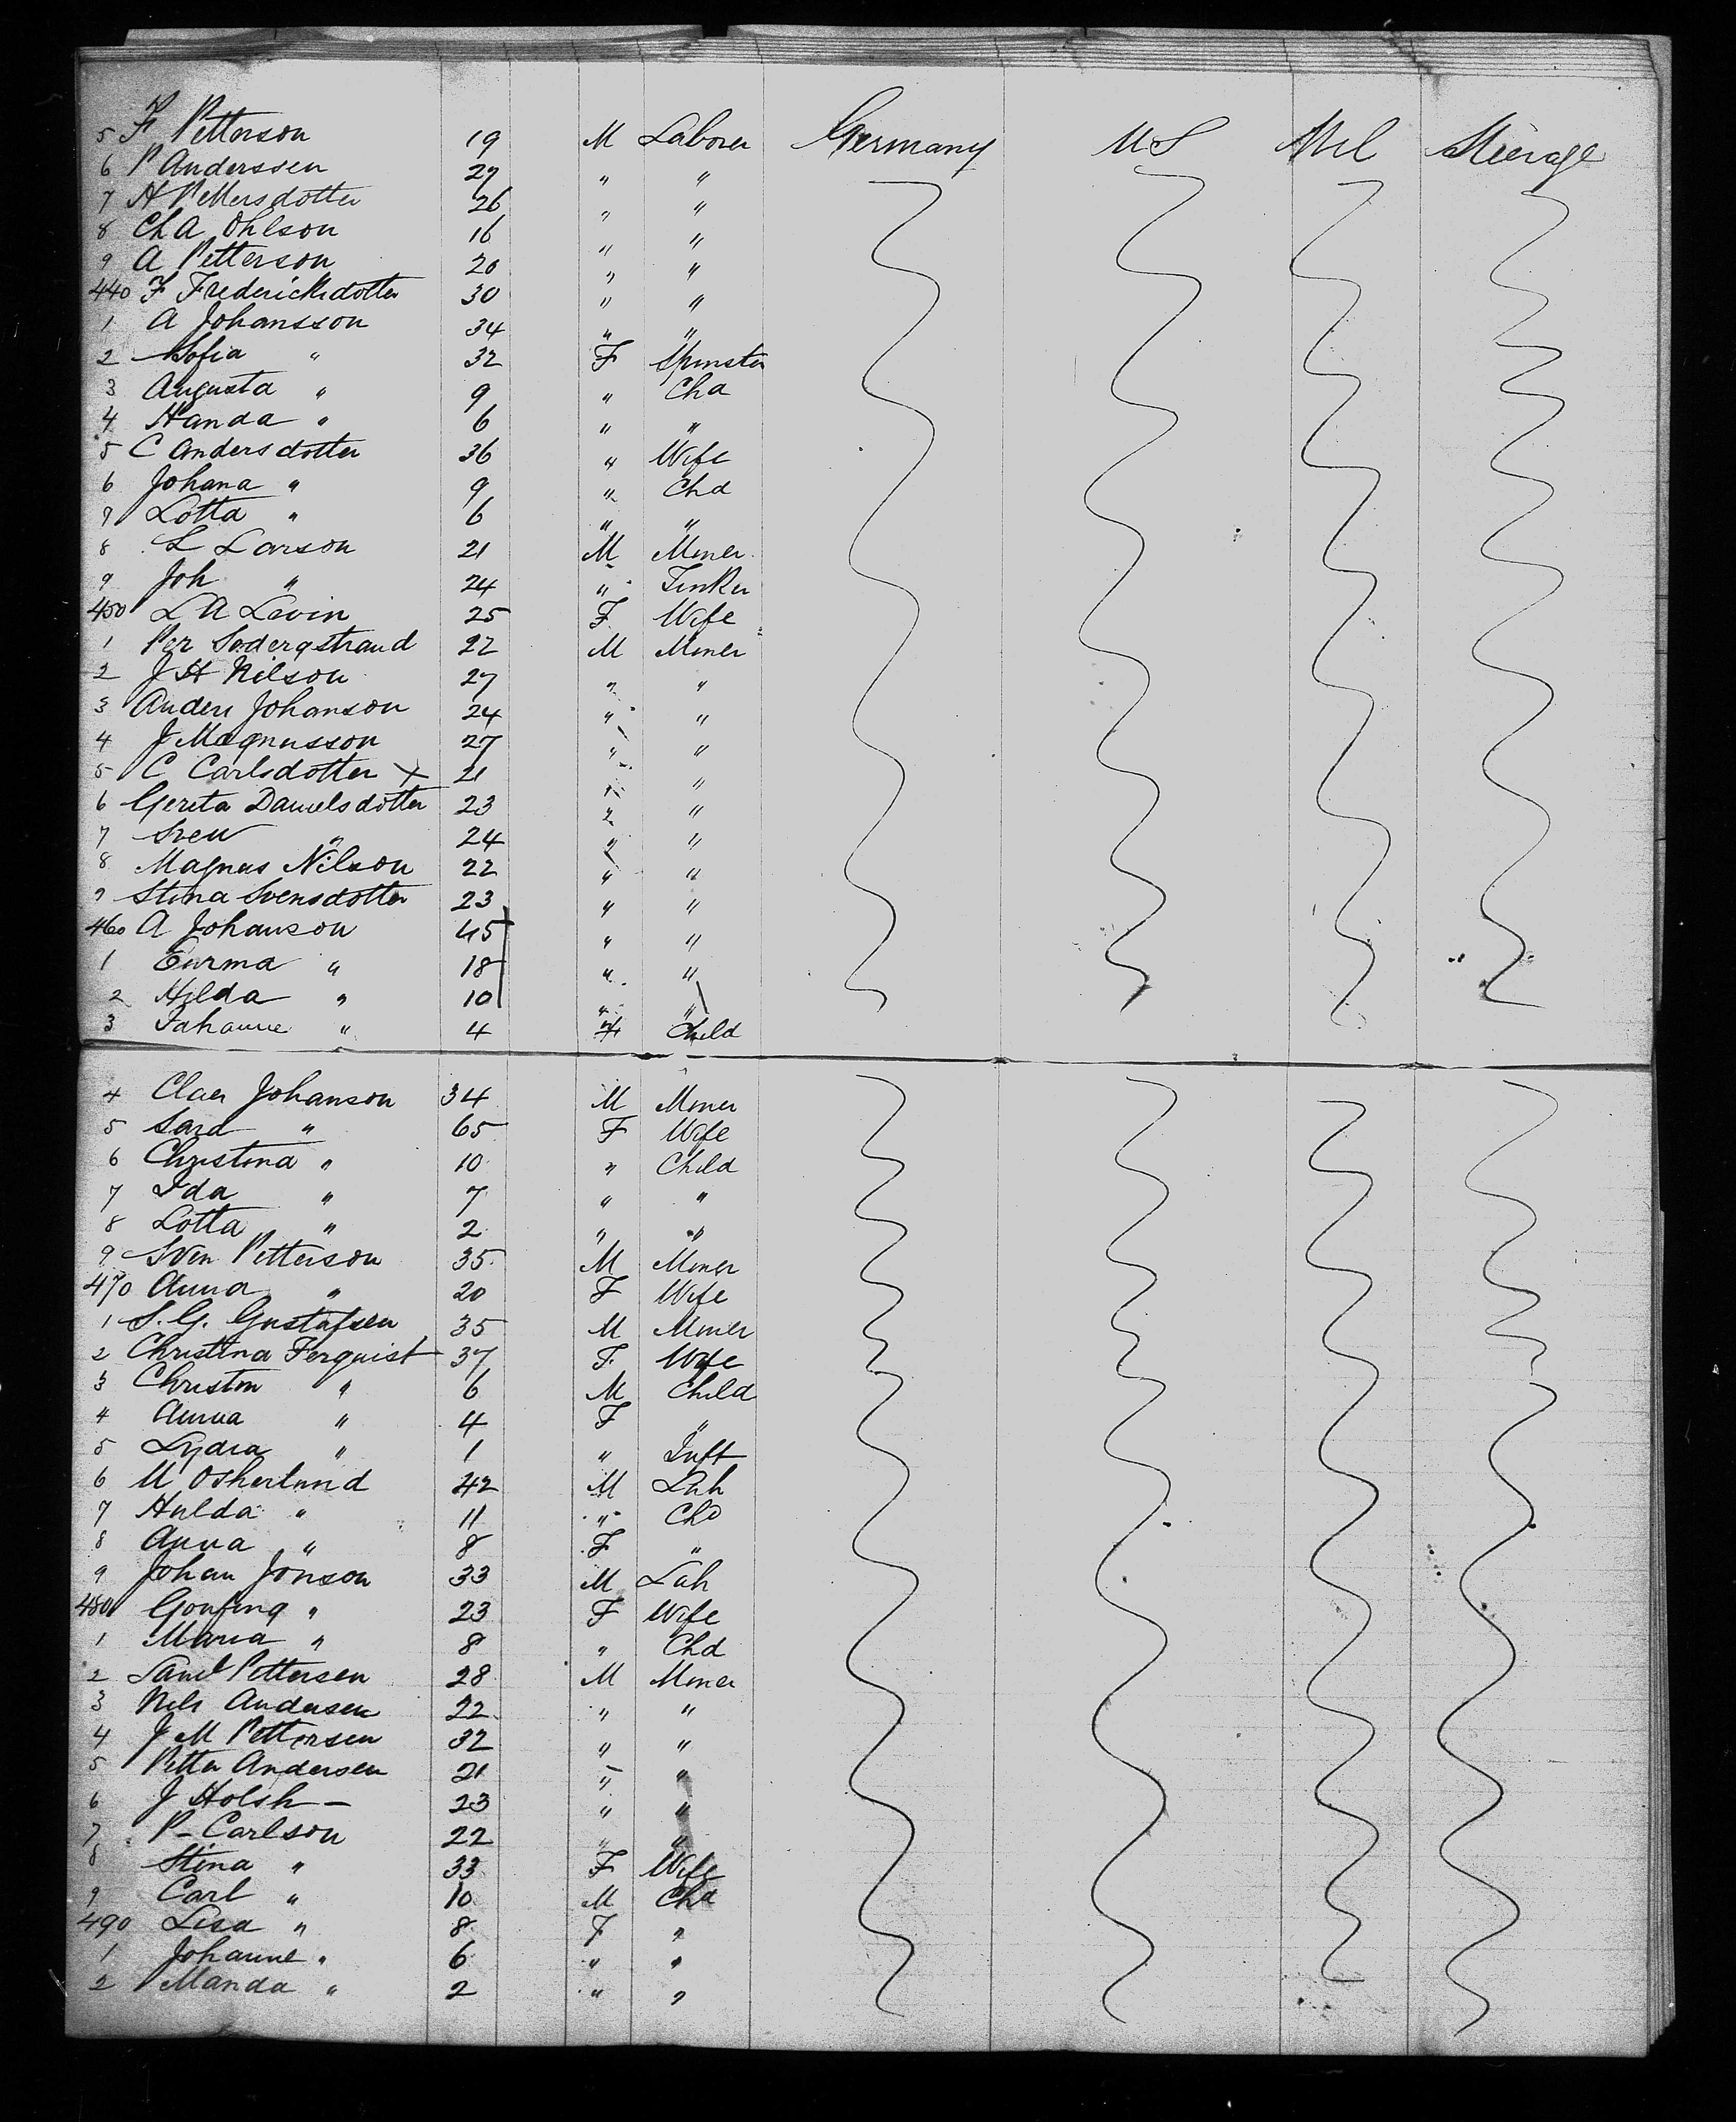 5 F Petterson 19 M Laborer Germany US Steerage
6 P Anderssen 27 " "
7 H Pettersdotter 26 " "
8 Ch A Ohlson 16 " "
9 A Petterson 20 " "
440 F Fredericksdotter 30 " "
1 A Johansson 34 " "
2 Sofia " 32 F Spinster
3 Augusta " 9 " Chd
4 Handa " 6 " "
5 C Andersdotter 36 " Wife
6 Johana " 9 " Chd
7 Lotta " 6 " "
8 L Larson 21 M Miner
9 Joh " 24 " Tinker
450 L A Levin 25 F Wife
1 Per Sodergstrand 22 M Miner
2 J H Nilson 27 " "
3 Anders Johanson 24 " "
4 J Magnusson 27 " "
5 C Carlsdotter x 21 " "
6 Gereta Danielsdotter 23 " "
7 Sven " 24 " "
8 Magnus Nilson 22 " "
9 Stina Svensdotter 23 " "
460 A Johanson 45 " "
1 Emma " 18 " "
2 Hilda " 10 " "
3 Johanne " 4 F Child
4 Claes Johanson 34 M Miner
5 Sara " 65 F Wife
6 Christina " 10 " Child
7 Ida " 7 " "
8 Lotta " 2 " "
9 Sven Petterson 35 M Miner
470 Anna " 20 F Wife
1 S. G. Gustafsen 35 M Miner
2 Christina Ferquist 37 F. Wife
3 Christin " 6 M Child
4 Anna " 4 F "
5 Lydia " 1 " Inft
6 M Osherlund 42 M Lab
7 Hulda " 11 " Chd
8 Anna " 8 F "
9 Johan Jonson 33 M Lab
480 " 23 F Wife
1 Maria " 8 " Chd
2 Saml Pettersen 28 M Miner
3 Nils Andersen 22 " "
4 J M Pettersen 32 " "
5 Petter Andersen 21 " "
6 J Holsh - 23 " "
7 P - Carlson 22 " "
8 Stina " 33 F Wife
9 Carl " 10 M Chd
490 Lisa " 8 F "
1 Johanne " 6 " "
2 Manda " 2 " "